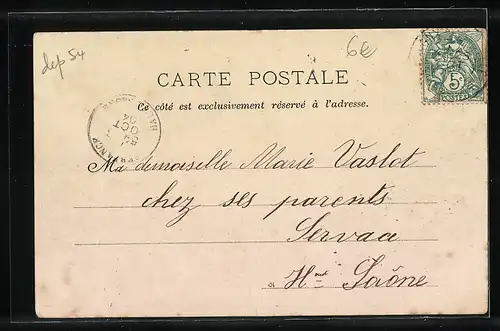 dep 54
6e
CARTE POSTALE
Ce côté est exclusivement réservé à l'adresse.
5c
OCT
04
Mademoiselle Marie Vaslot
chez ses parents
Servaa
à Hte Saône